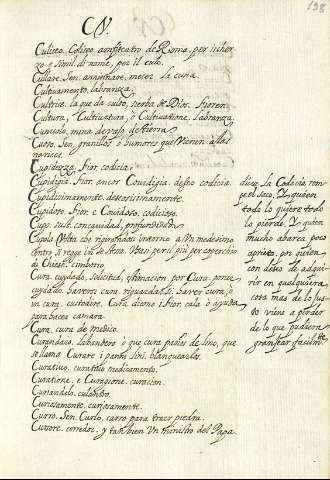 CV.
138
Culiseo, Coliseo anfiteatro de Roma, per ischer
zo e simil. di nome, per il culo.
Cullare, Sen. anninare, mecer la cuna.
Cultivamento, labranza.
Cultrice, la que da culto, sierba de Dios. Fioren.
Cultura, Cultivatura, o Cultivatione, labranza.
de tierra
Cuoso, Sen. granillos o humores que vienen a las
narices.
Cupidezza, Fior. codicia.
Cupidigia, Fior. encor Covidigia, deseo codicia.
Cupidissimamente,
Cupidoso, Fior. e Covidoso, codicioso.
Cupo, concavidad, profundidad
Cupola, Volta che rigirandosi intorno a un medesimo
centro si regge in se stessa. Usasi per il più per coverchio
di Chiese, cimborio.
Cura, cuydado, solicitud,
cuydado. Haversi cura, riguardarsi. Haver cura, o
in cura, custodire. Cura, dicono i Fior. cala o ayuda
para hacer camara
Cura, cura de Medico.
Curandaio, labandero o que cura paños de lino, que
se llama Curare i panni lini, blanquearlos.
Curativo, curativo medicamento.
Curatione, e Curagione, curacion.
Curiandolo, culantro.
Curiosamente, curiosamente.
Curro, Sen. Curlo, carro para traer piedra.
Cursore, corredor, y tambien Un ministro del Papa
dicese La Codicia rom
pe el saco. Y quien
todo lo quiere todo
lo pierde. Y quien
mucho abarca poco
aprieta, por quien
con deseo de adqui-
rir en qualquiera
cosa mas de lo jus-
to viene a perder
de lo que pudiera
granjear facilmte